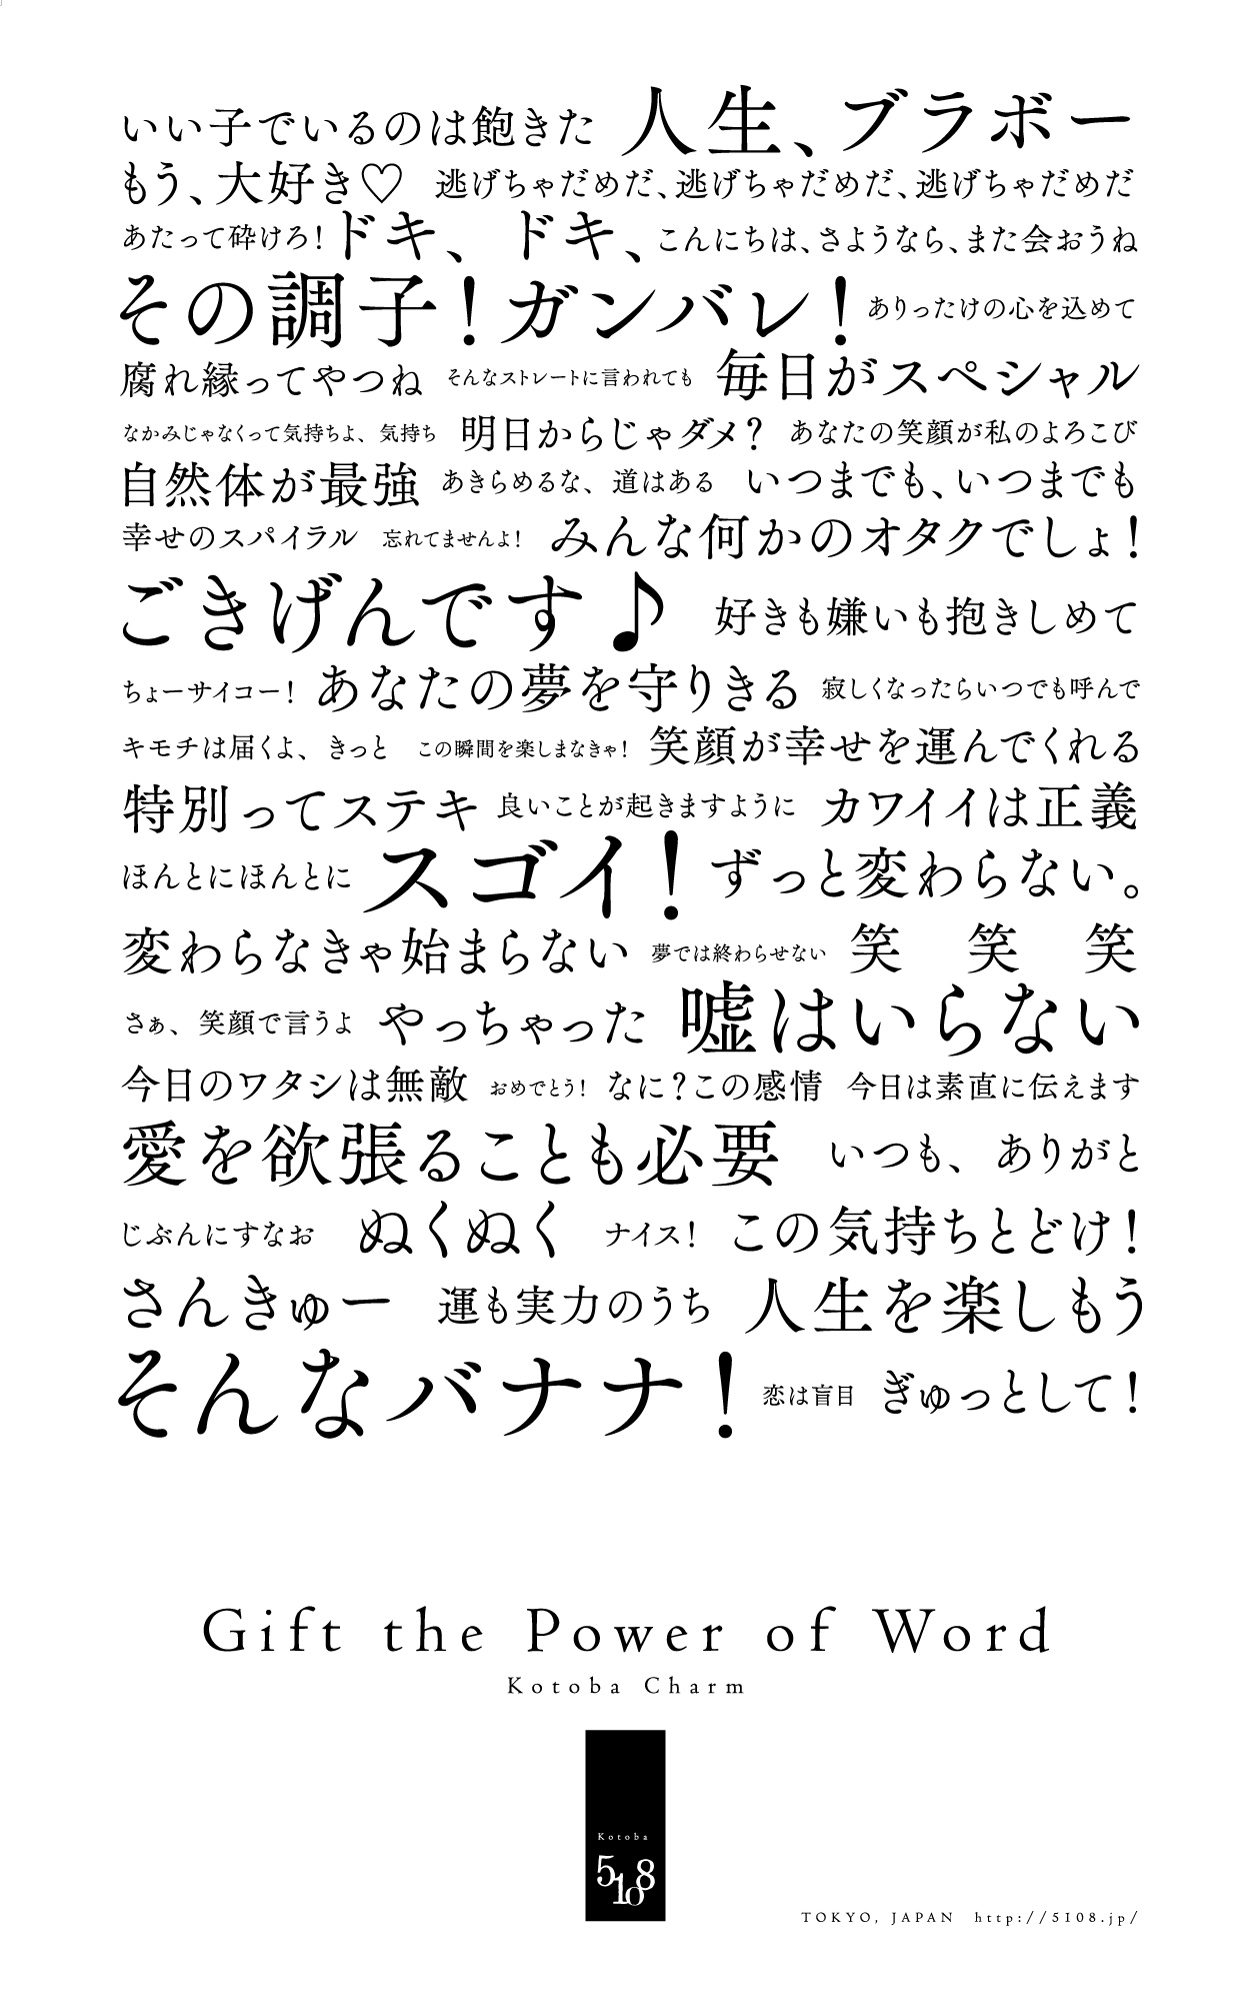 いい子でいるのは飽きた 人生、ブラボー
もう、大好き♡ 逃げちゃだめだ、逃げちゃだめだ、逃げちゃだめだ
あたって砕けろ！ドキ、ドキ、こんにちは、さようなら、また会おうね
その調子！ガンバレ！ありったけの心を込めて
腐れ縁ってやつね そんなストレートに言われても 毎日がスペシャル
なかみじゃなくって気持ちよ、気持ち 明日からじゃダメ？ あなたの笑顔が私のよろこび
自然体が最強 あきらめるな、道はある いつまでも、いつまでも
幸せのスパイラル 忘れてませんよ！ みんな何かのオタクでしょ！
ごきげんです♪ 好きも嫌いも抱きしめて
ちょーサイコー！ あなたの夢を守りきる 寂しくなったらいつでも呼んで
キモチは届くよ、きっと この瞬間を楽しまなきゃ！ 笑顔が幸せを運んでくれる
特別ってステキ 良いことが起きますように カワイイは正義
ほんとにほんとに スゴイ！ ずっと変わらない。
変わらなきゃ始まらない 夢では終わらせない 笑 笑 笑
さぁ、笑顔で言うよ やっちゃった 嘘はいらない
今日のワタシは無敵 おめでとう！ なに？この感情 今日は素直に伝えます
愛を欲張ることも必要 いつも、ありがと
じぶんにすなお ぬくぬく ナイス！ この気持ちとどけ！
さんきゅー 運も実力のうち 人生を楽しもう
そんなバナナ！ 恋は盲目 ぎゅっとして！
Gift the Power of Word
Kotoba Charm
Kotoba
5108
TOKYO, JAPAN http://5108.jp/